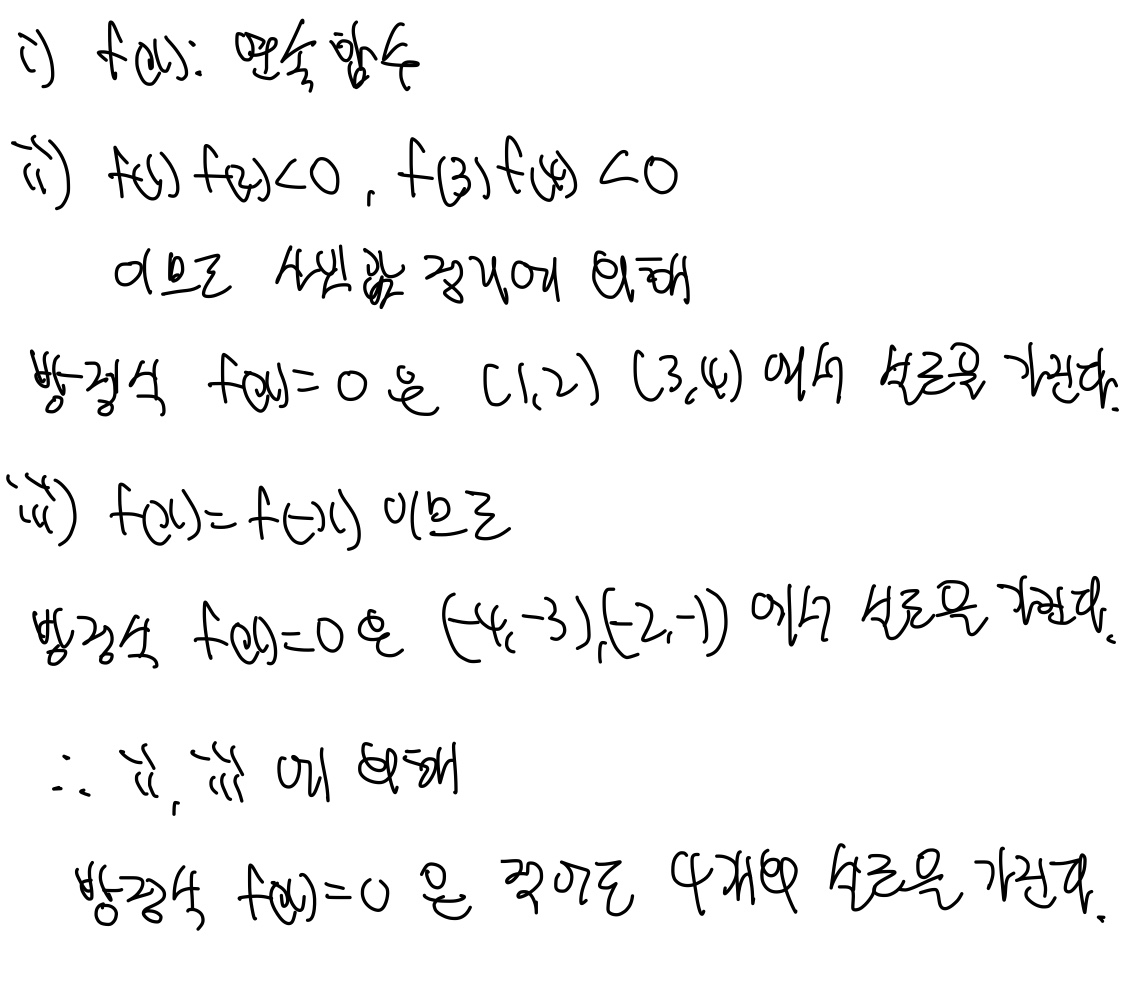 i) f(x): 연속함수
ii) f(1)f(2)<0, f(3)f(4)<0
이므로 사잇값 정리에 의해
방정식 f(x)=0은 (1,2) (3,4)에서 실근을 가진다.
iii) f(x)=f(-x) 이므로
방정식 f(x)=0은 (-4,-3),(-2,-1)에서 실근을 가진다.
∴ ii, iii에 의해
방정식 f(x)=0은 적어도 4개의 실근을 가진다.